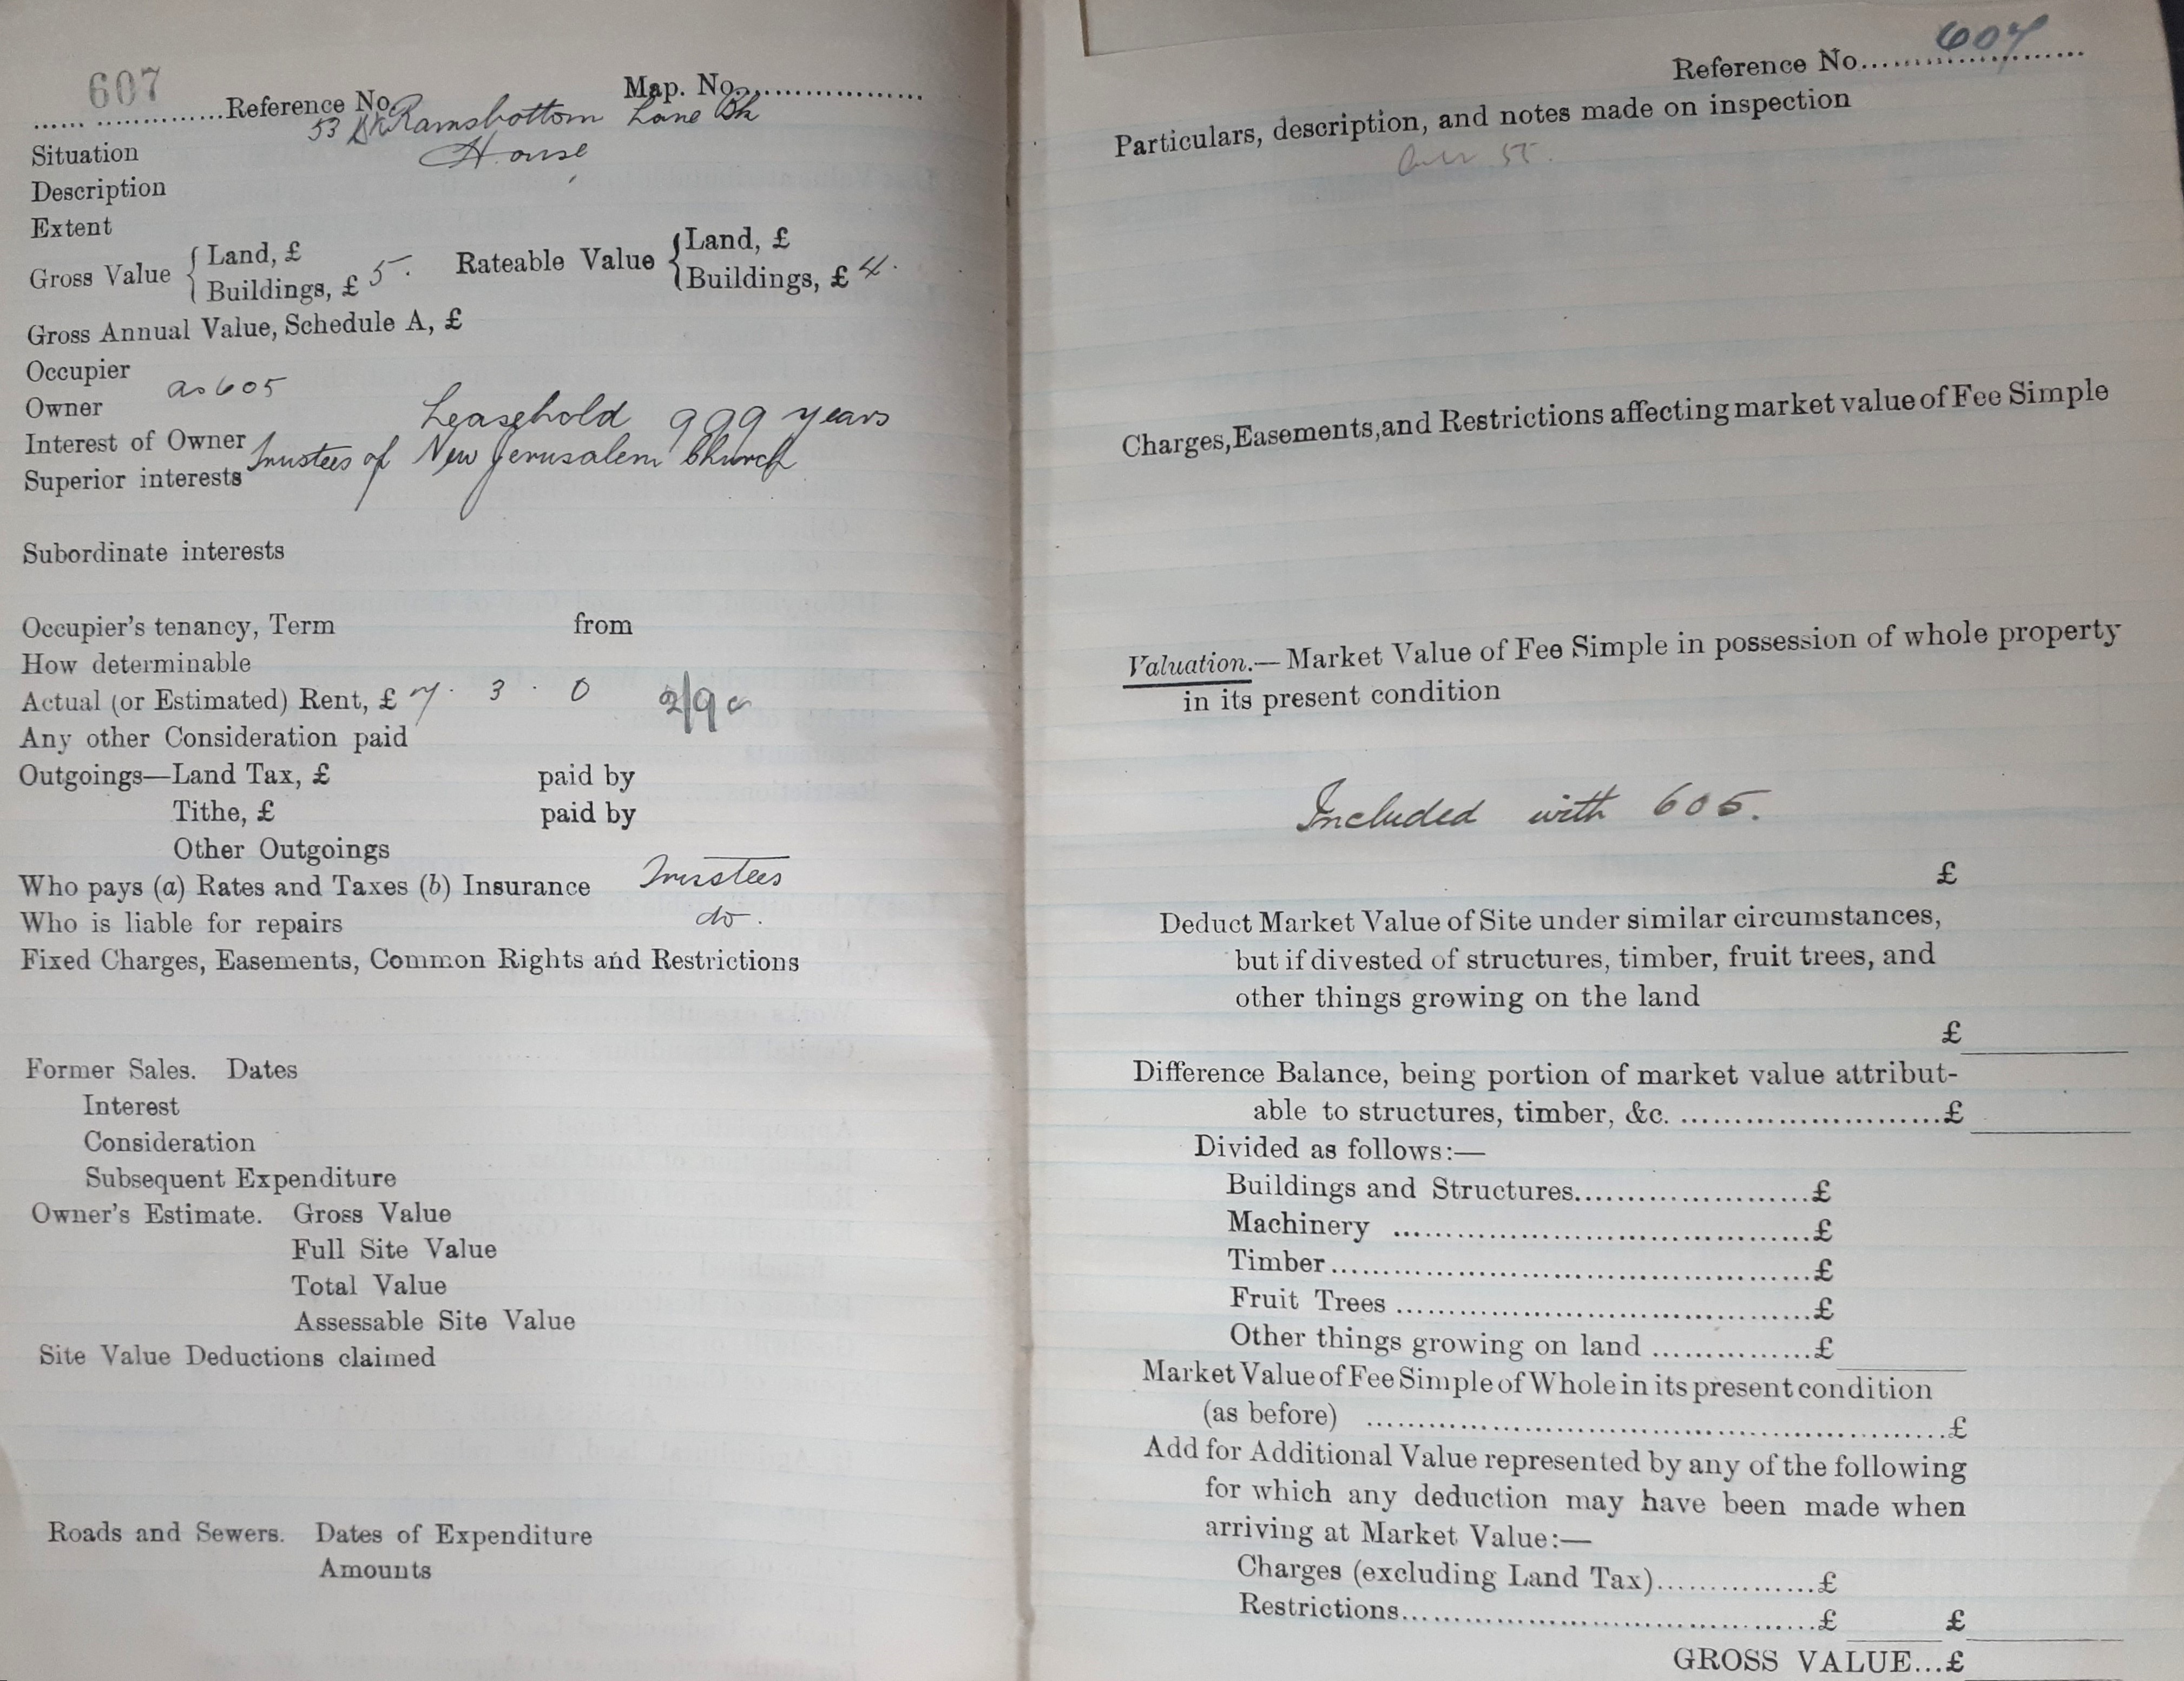 607
Reference No. Map. No.
Situation 53 Ramsbottom Lane Bk
Description House
Extent
Gross Value { Land, £ Rateable Value { Land, £
Buildings, £ 5. Buildings, £ 4.
Gross Annual Value, Schedule A, £
Occupier
Owner as 605
Interest of Owner Leasehold 999 years
Superior interests Trustees of New Jerusalem Church
Subordinate interests
Occupier's tenancy, Term from
How determinable
Actual (or Estimated) Rent, £ 7. 3. 0 2/9
Any other Consideration paid
Outgoings—Land Tax, £ paid by
Tithe, £ paid by
Other Outgoings
Who pays (a) Rates and Taxes (b) Insurance Trustees
Who is liable for repairs do.
Fixed Charges, Easements, Common Rights and Restrictions
Former Sales. Dates
Interest
Consideration
Subsequent Expenditure
Owner's Estimate. Gross Value
Full Site Value
Total Value
Assessable Site Value
Site Value Deductions claimed
Roads and Sewers. Dates of Expenditure
Amounts
Reference No. 607
Particulars, description, and notes made on inspection
55.
Charges, Easements, and Restrictions affecting market value of Fee Simple
Valuation.— Market Value of Fee Simple in possession of whole property
in its present condition
Included with 605.
£
Deduct Market Value of Site under similar circumstances,
but if divested of structures, timber, fruit trees, and
other things growing on the land
£
Difference Balance, being portion of market value attribut-
able to structures, timber, &c. £
Divided as follows:—
Buildings and Structures £
Machinery £
Timber £
Fruit Trees £
Other things growing on land £
Market Value of Fee Simple of Whole in its present condition
(as before) £
Add for Additional Value represented by any of the following
for which any deduction may have been made when
arriving at Market Value:—
Charges (excluding Land Tax) £
Restrictions £ £
GROSS VALUE...£